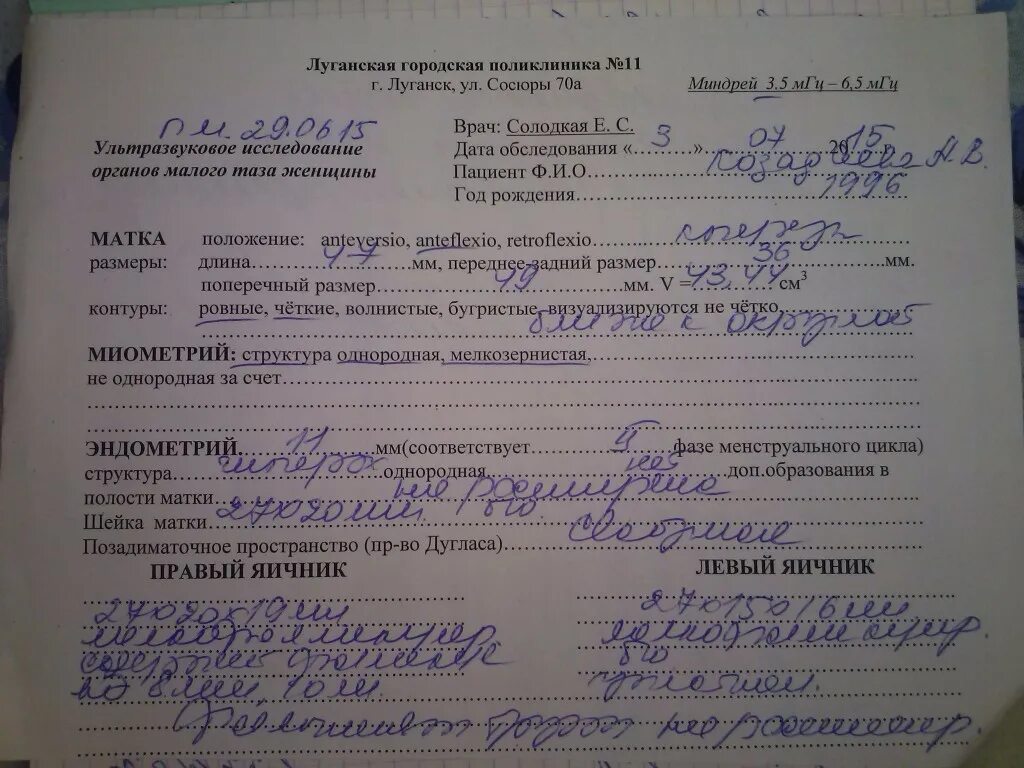 Луганская городская поликлиника №11
г. Луганск, ул. Сосюры 70а
Миндрей 3.5 мГц – 6,5 мГц
П.М. 29.06 15
Ультразвуковое исследование
органов малого таза женщины
Врач: Солодкая Е. С.
Дата обследования «3» 07 2015 г.
Пациент Ф.И.О. Н.В.
Год рождения 1996
МАТКА положение: anteversio, anteflexio, retroflexio кпереди
размеры: длина 47 мм, переднее-задний размер 36 мм.
поперечный размер 49 мм. V = 43,44 см3
контуры: ровные, чёткие, волнистые, бугристые, визуализируются не чётко,
близка к округлой
МИОМЕТРИЙ: структура однородная, мелкозернистая,
не однородная за счет
ЭНДОМЕТРИЙ 11 мм(соответствует II фазе менструального цикла)
структура однородная, нет доп.образования в
полости матки не расширена
Шейка матки 27х20мм б/о
Позадиматочное пространство (пр-во Дугласа) свободное
ПРАВЫЙ ЯИЧНИК
27х20х19мм
содержит
до 8мм
ЛЕВЫЙ ЯИЧНИК
27х15х16мм
б/о
трубы не расширены.